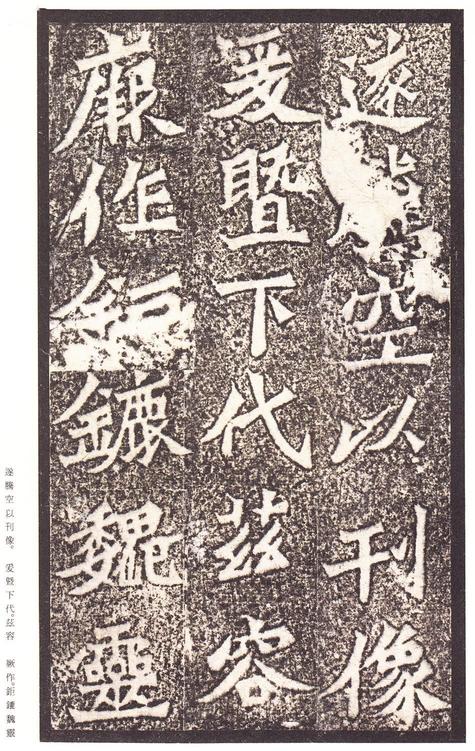 遂空以刊像
爰暨下代茲容
厥作鉅鏕魏靈
遂騰空以刊像。爰暨下代。茲容　厥作。鉅鏕魏靈